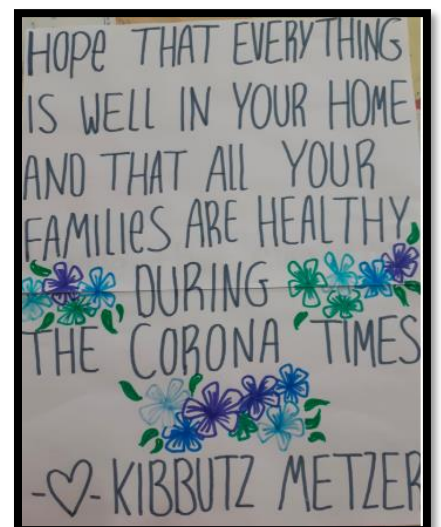 HOPe THAT EVERYTHING
IS WELL IN YOUR HOME
AND THAT All YOUR
FAMILIeS ARE HEALTHY
DURING
THE CORONA TIMES
-♡- KIBBUTZ METZER